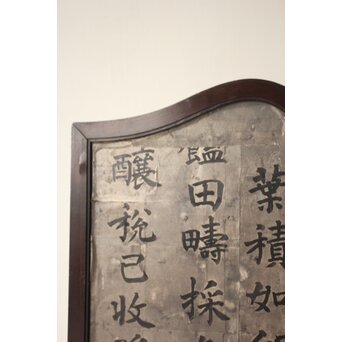 葉積如
田疇採
釀稅已收